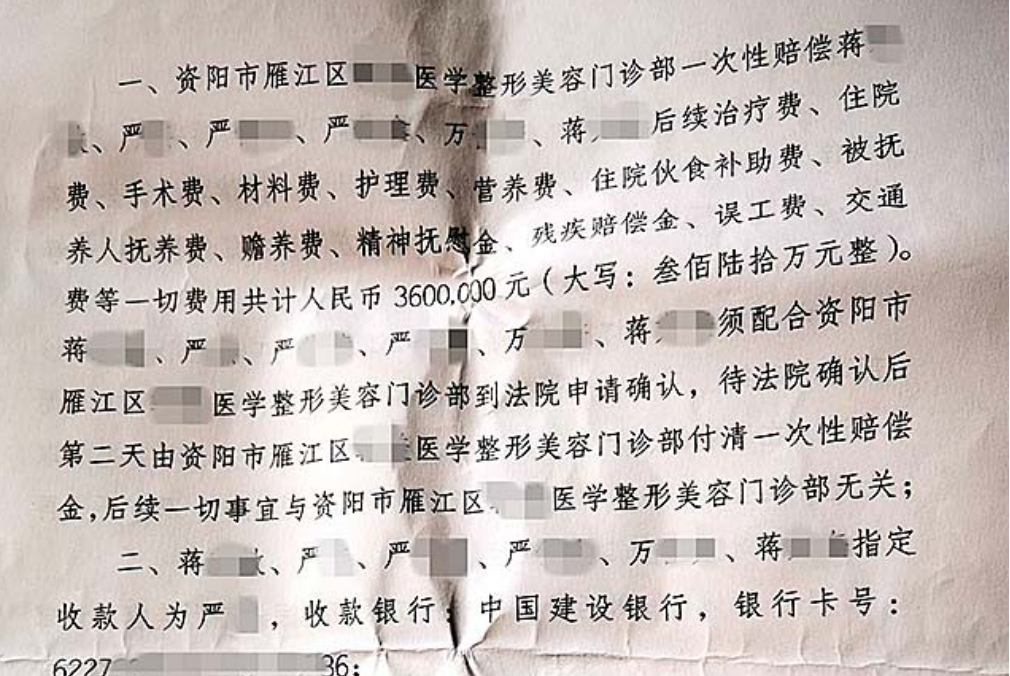 一、资阳市雁江区 医学整形美容门诊部一次性赔偿蒋
、严 、严 、严 、万 、蒋 后续治疗费、住院
费、手术费、材料费、护理费、营养费、住院伙食补助费、被抚
养人抚养费、赡养费、精神抚慰金、残疾赔偿金、误工费、交通
费等一切费用共计人民币 3600.000 元（大写：叁佰陆拾万元整）。
蒋 、严 、严 、严 、万 、蒋 须配合资阳市
雁江区 医学整形美容门诊部到法院申请确认，待法院确认后
第二天由资阳市雁江区 医学整形美容门诊部付清一次性赔偿
金，后续一切事宜与资阳市雁江区 医学整形美容门诊部无关；
二、蒋 、严 、严 、严 、万 、蒋 指定
收款人为严 ，收款银行：中国建设银行，银行卡号：
6227 36；